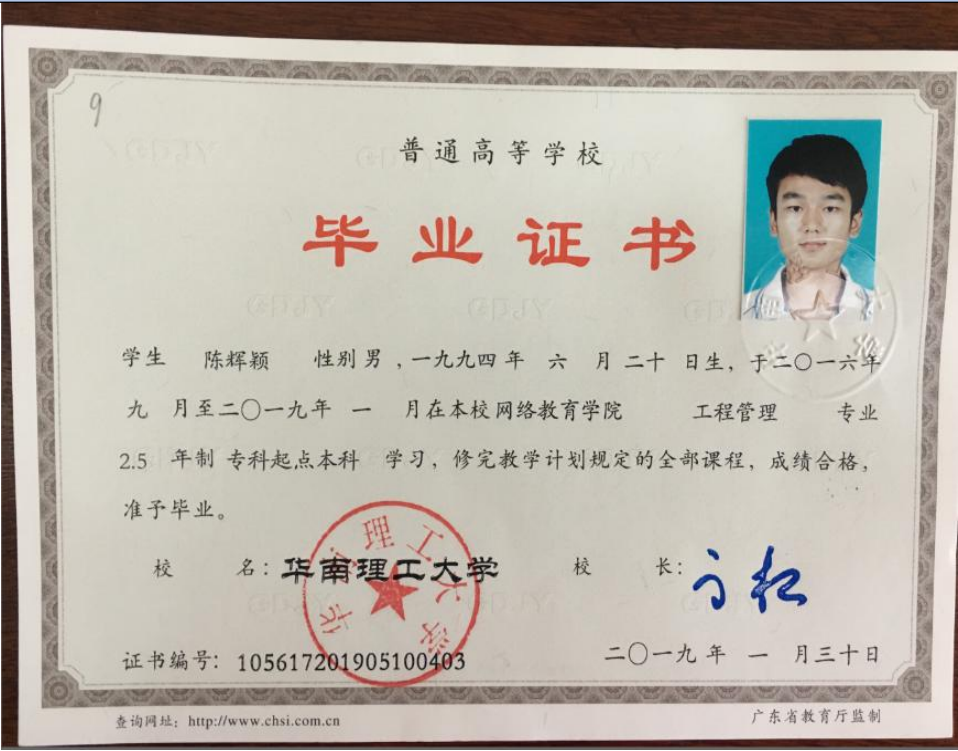 9
普通高等学校
毕业证书
学生 陈辉颖 性别男,一九九四年 六 月二十 日生,于二〇一六年
九 月至二〇一九年 一 月在本校网络教育学院 工程管理 专业
2.5 年制 专科起点本科 学习,修完教学计划规定的全部课程,成绩合格,
准予毕业。
校 名:华南理工大学 校 长:
华南理工大学
证书编号:105617201905100403 二〇一九年 一 月三十日
查询网址:http://www.chsi.com.cn 广东省教育厅监制